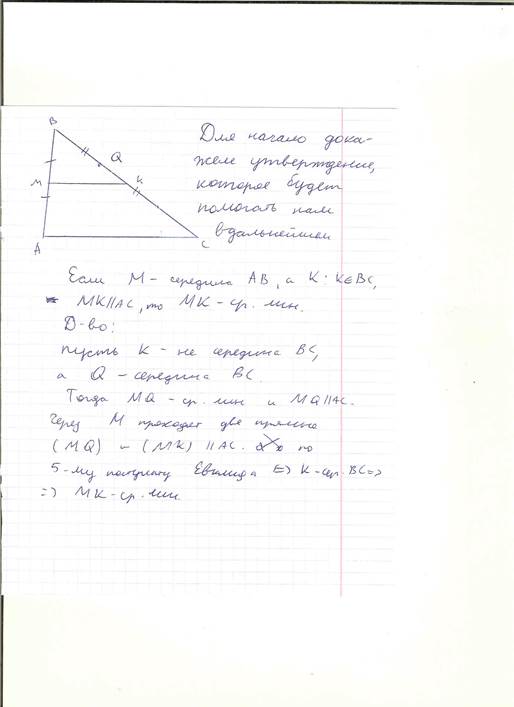 B
Q
M
K
A
C
Для начало дока-
жем утверждение,
которое будет
помогать нам
вдальнейшем
Если M - середина AB, а K : K∈BC,
MK||AC, то MK - ср. лин.
Д-во:
пусть K - не середина BC,
а Q - середина BC.
Тогда MQ - ср. лин и MQ||AC.
Через M проходят две прямые
(MQ) и (MK) ||AC. по
5-му постулату Евклида => K - сер. BC =>
=> MK - ср. лин.